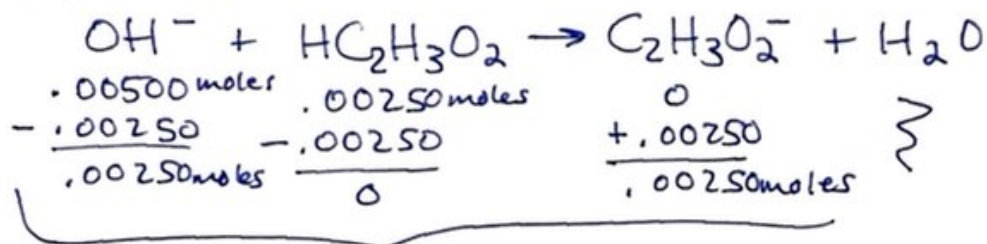 OH⁻ + HC₂H₃O₂ → C₂H₃O₂⁻ + H₂O
.00500 moles .00250 moles 0
- .00250 - .00250 + .00250
.00250 moles 0 .00250 moles